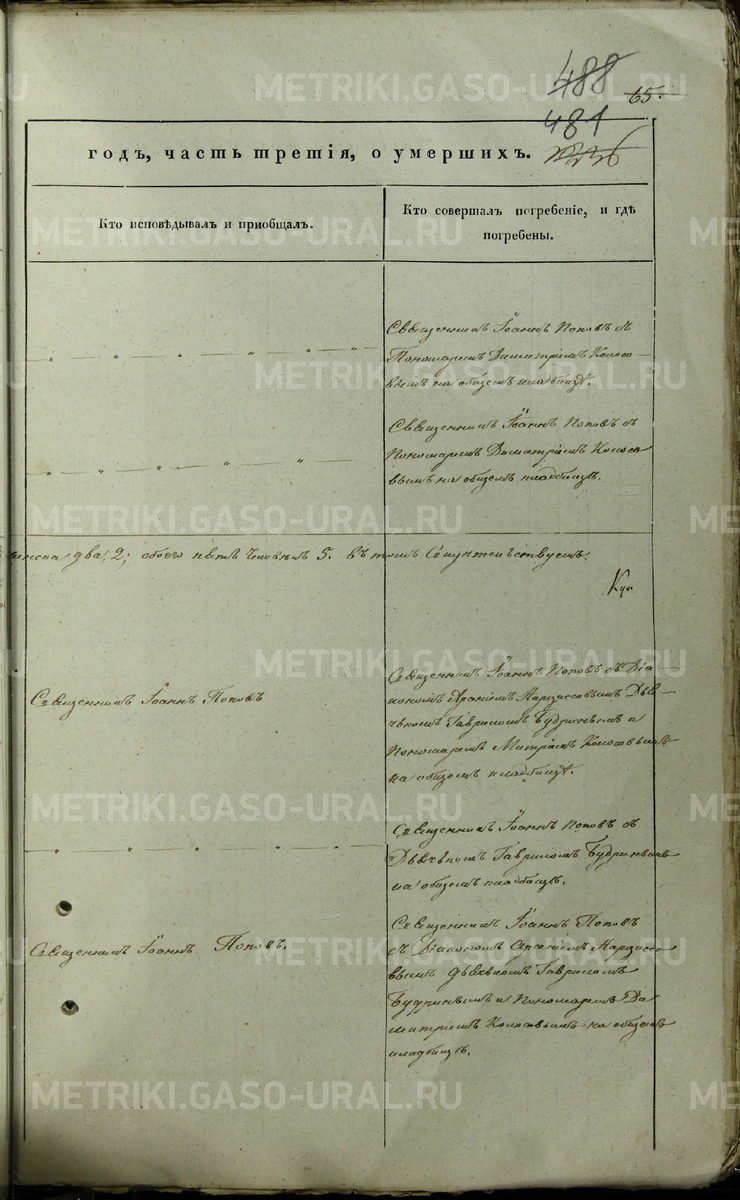 488
65.
481
годъ, часть третія, о умершихъ.
Кто исповѣдывалъ и приобщалъ.
Кто совершалъ погребеніе, и гдѣ
погребены.
Священникъ Іоаннъ Поповъ съ
Пономаремъ Димитріемъ Колосо-
вымъ на общемъ кладбищѣ.
Священникъ Іоаннъ Поповъ съ
Пономаремъ Димитріемъ Колосо
вымъ на общемъ кладбищѣ.
женска два, 2; обоего пола человѣкъ 5. въ томъ Свидѣтельствуемъ:
Священникъ Іоаннъ Поповъ
Священникъ Іоаннъ Поповъ съ Діа-
кономъ Нарциссовымъ Дья-
чкомъ Гавриломъ Будринымъ и
Пономаремъ Митріемъ Колосовымъ
на общемъ кладбищѣ.
Священникъ Іоаннъ Поповъ съ
Дьячкомъ Гавриломъ Будринымъ
на общемъ кладбищѣ.
Священникъ Іоаннъ Поповъ.
Священникъ Іоаннъ Поповъ
съ Діакономъ Нарциссо
вымъ дьячкомъ Гавриломъ
Будринымъ и Пономаремъ Ди
митріемъ Колосовымъ на общемъ
кладбищѣ.
METRIKI.GASO-URAL.RU